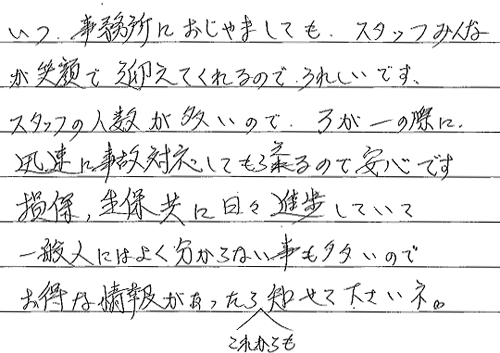 いつ、事務所におじゃましても、スタッフみんな
が笑顔で迎えてくれるので、うれしいです、
スタッフの人数が多いので、万が一の際に、
迅速に事故対応してもらえるので安心です
損保，生保共に日々進歩していて
一般人にはよく分からない事も多いので
お得な情報があったら知せて下さいネ。
これからも